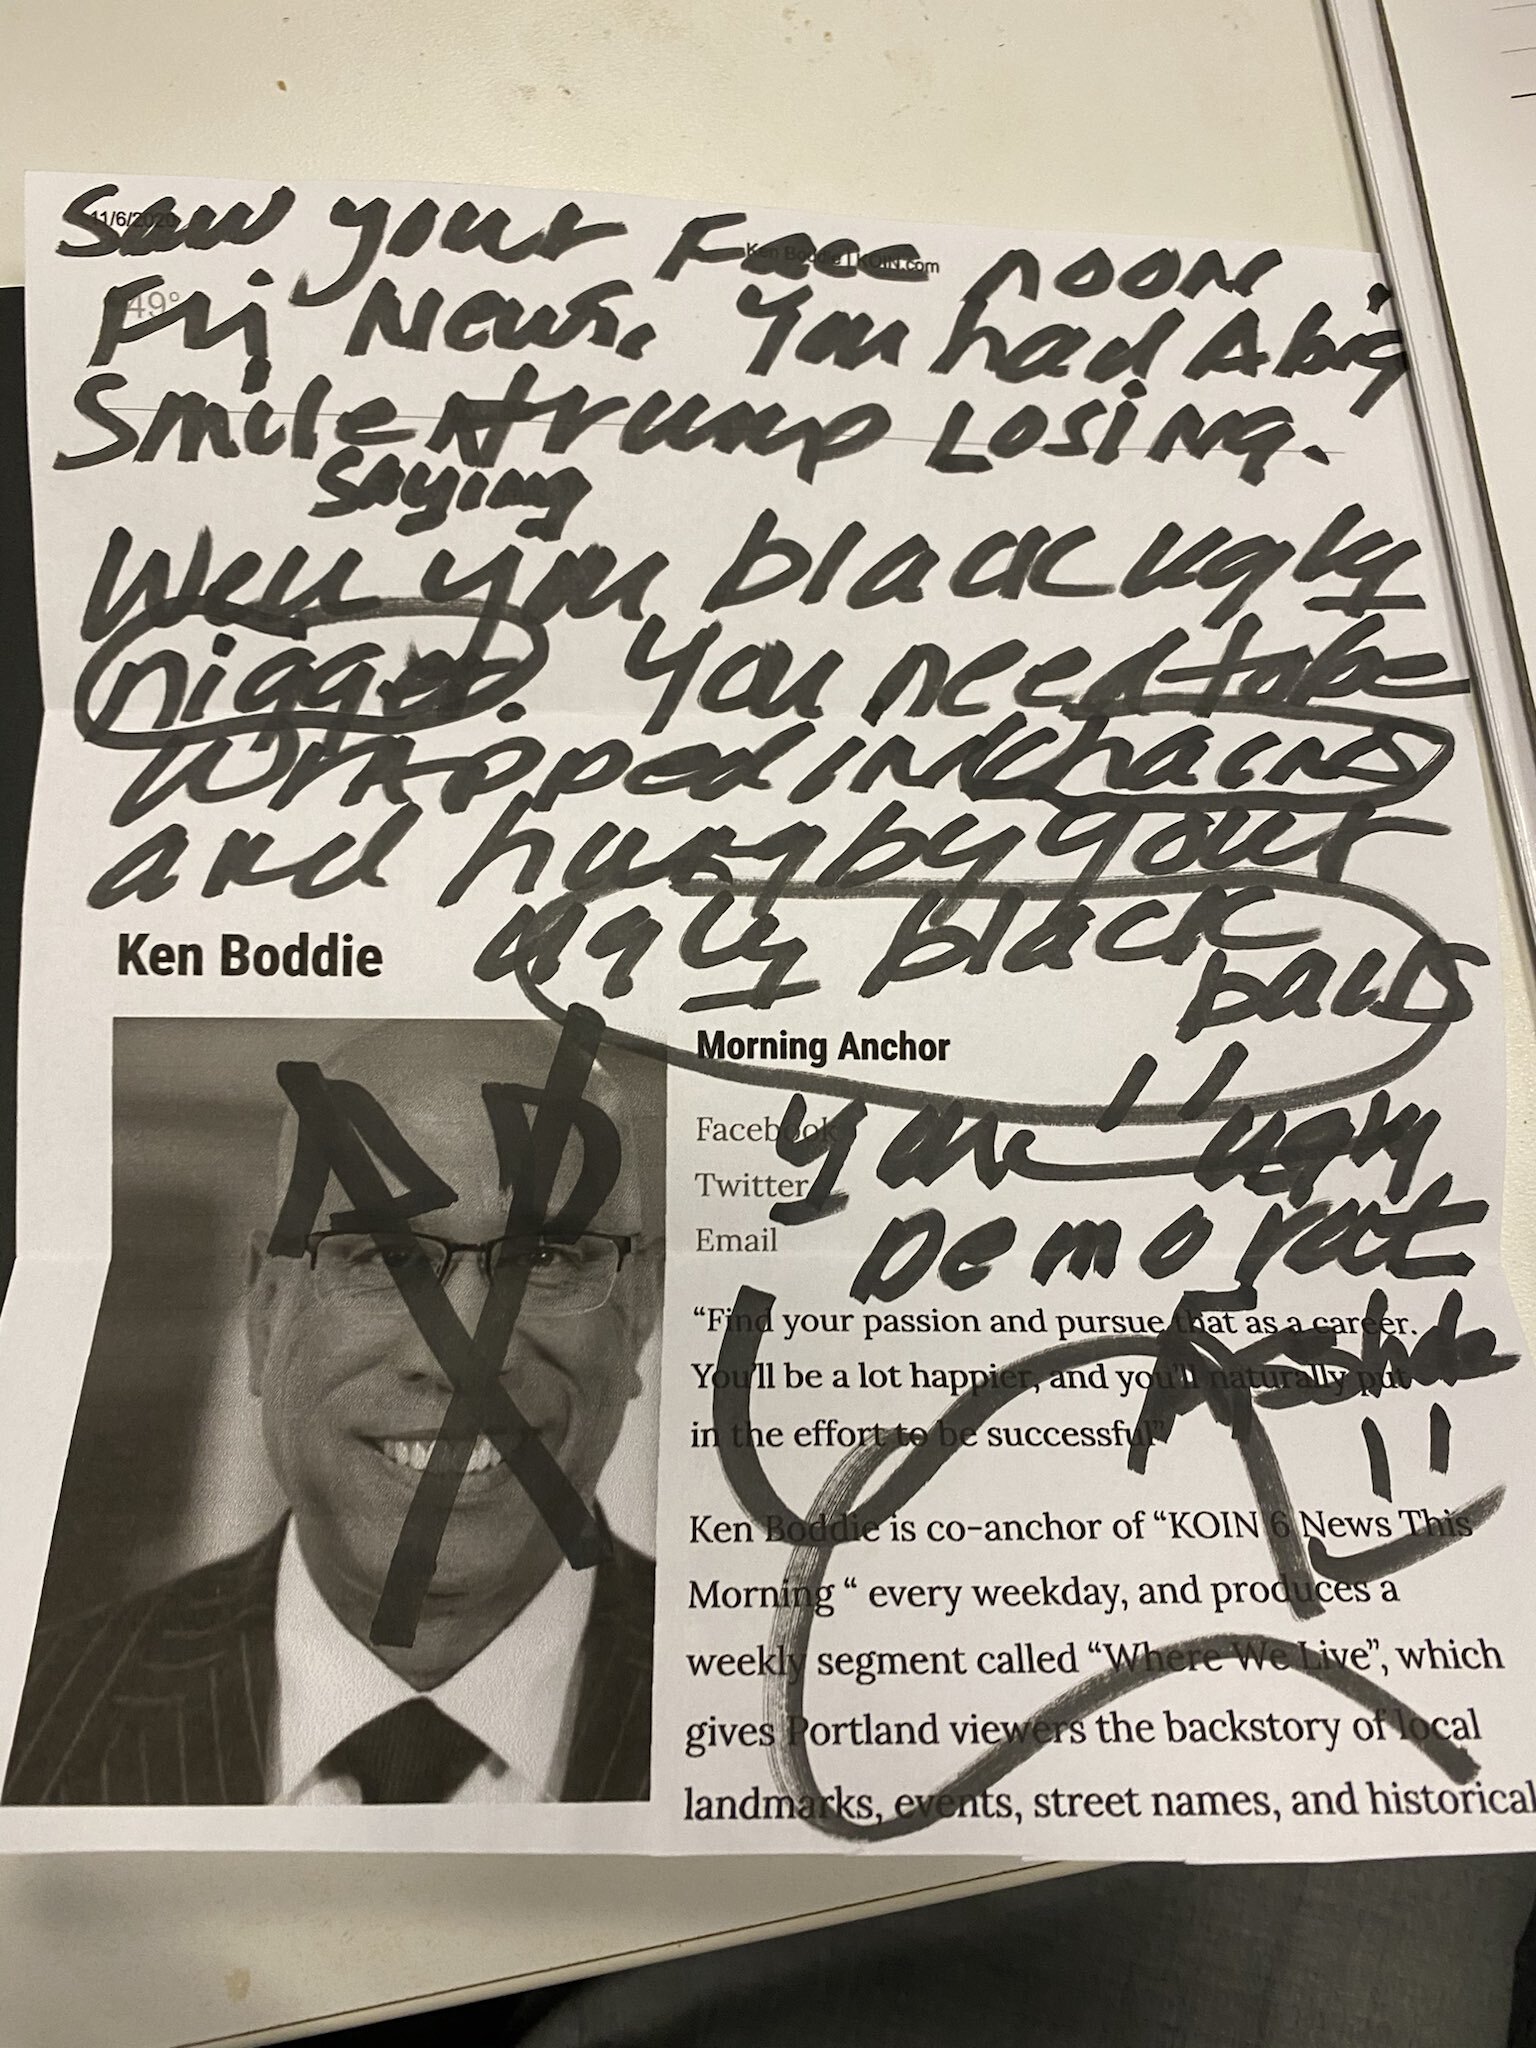 11/6/2020
Ken Boddie | KOIN.com
49°
Saw your Face noon
Fri News. You had A big
Smile trump Losing.
saying
Well you black ugly
nigger. You need to be
wrapped in chains
and hung by your
ugly black
balls
Ken Boddie
Morning Anchor
Facebook
Twitter
Email
You ugly
Demo rat
"Find your passion and pursue that as a career.
You'll be a lot happier, and you'll naturally put
in the effort to be successful"
!!
Ken Boddie is co-anchor of "KOIN 6 News This
Morning " every weekday, and produces a
weekly segment called "Where We Live", which
gives Portland viewers the backstory of local
landmarks, events, street names, and historical